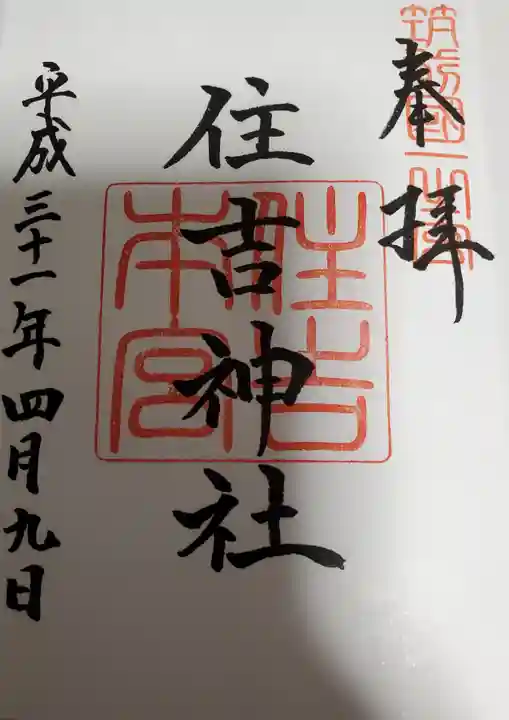 奉拝
筑前國一之宮
住吉神社
住吉本宮
平成三十一年四月九日